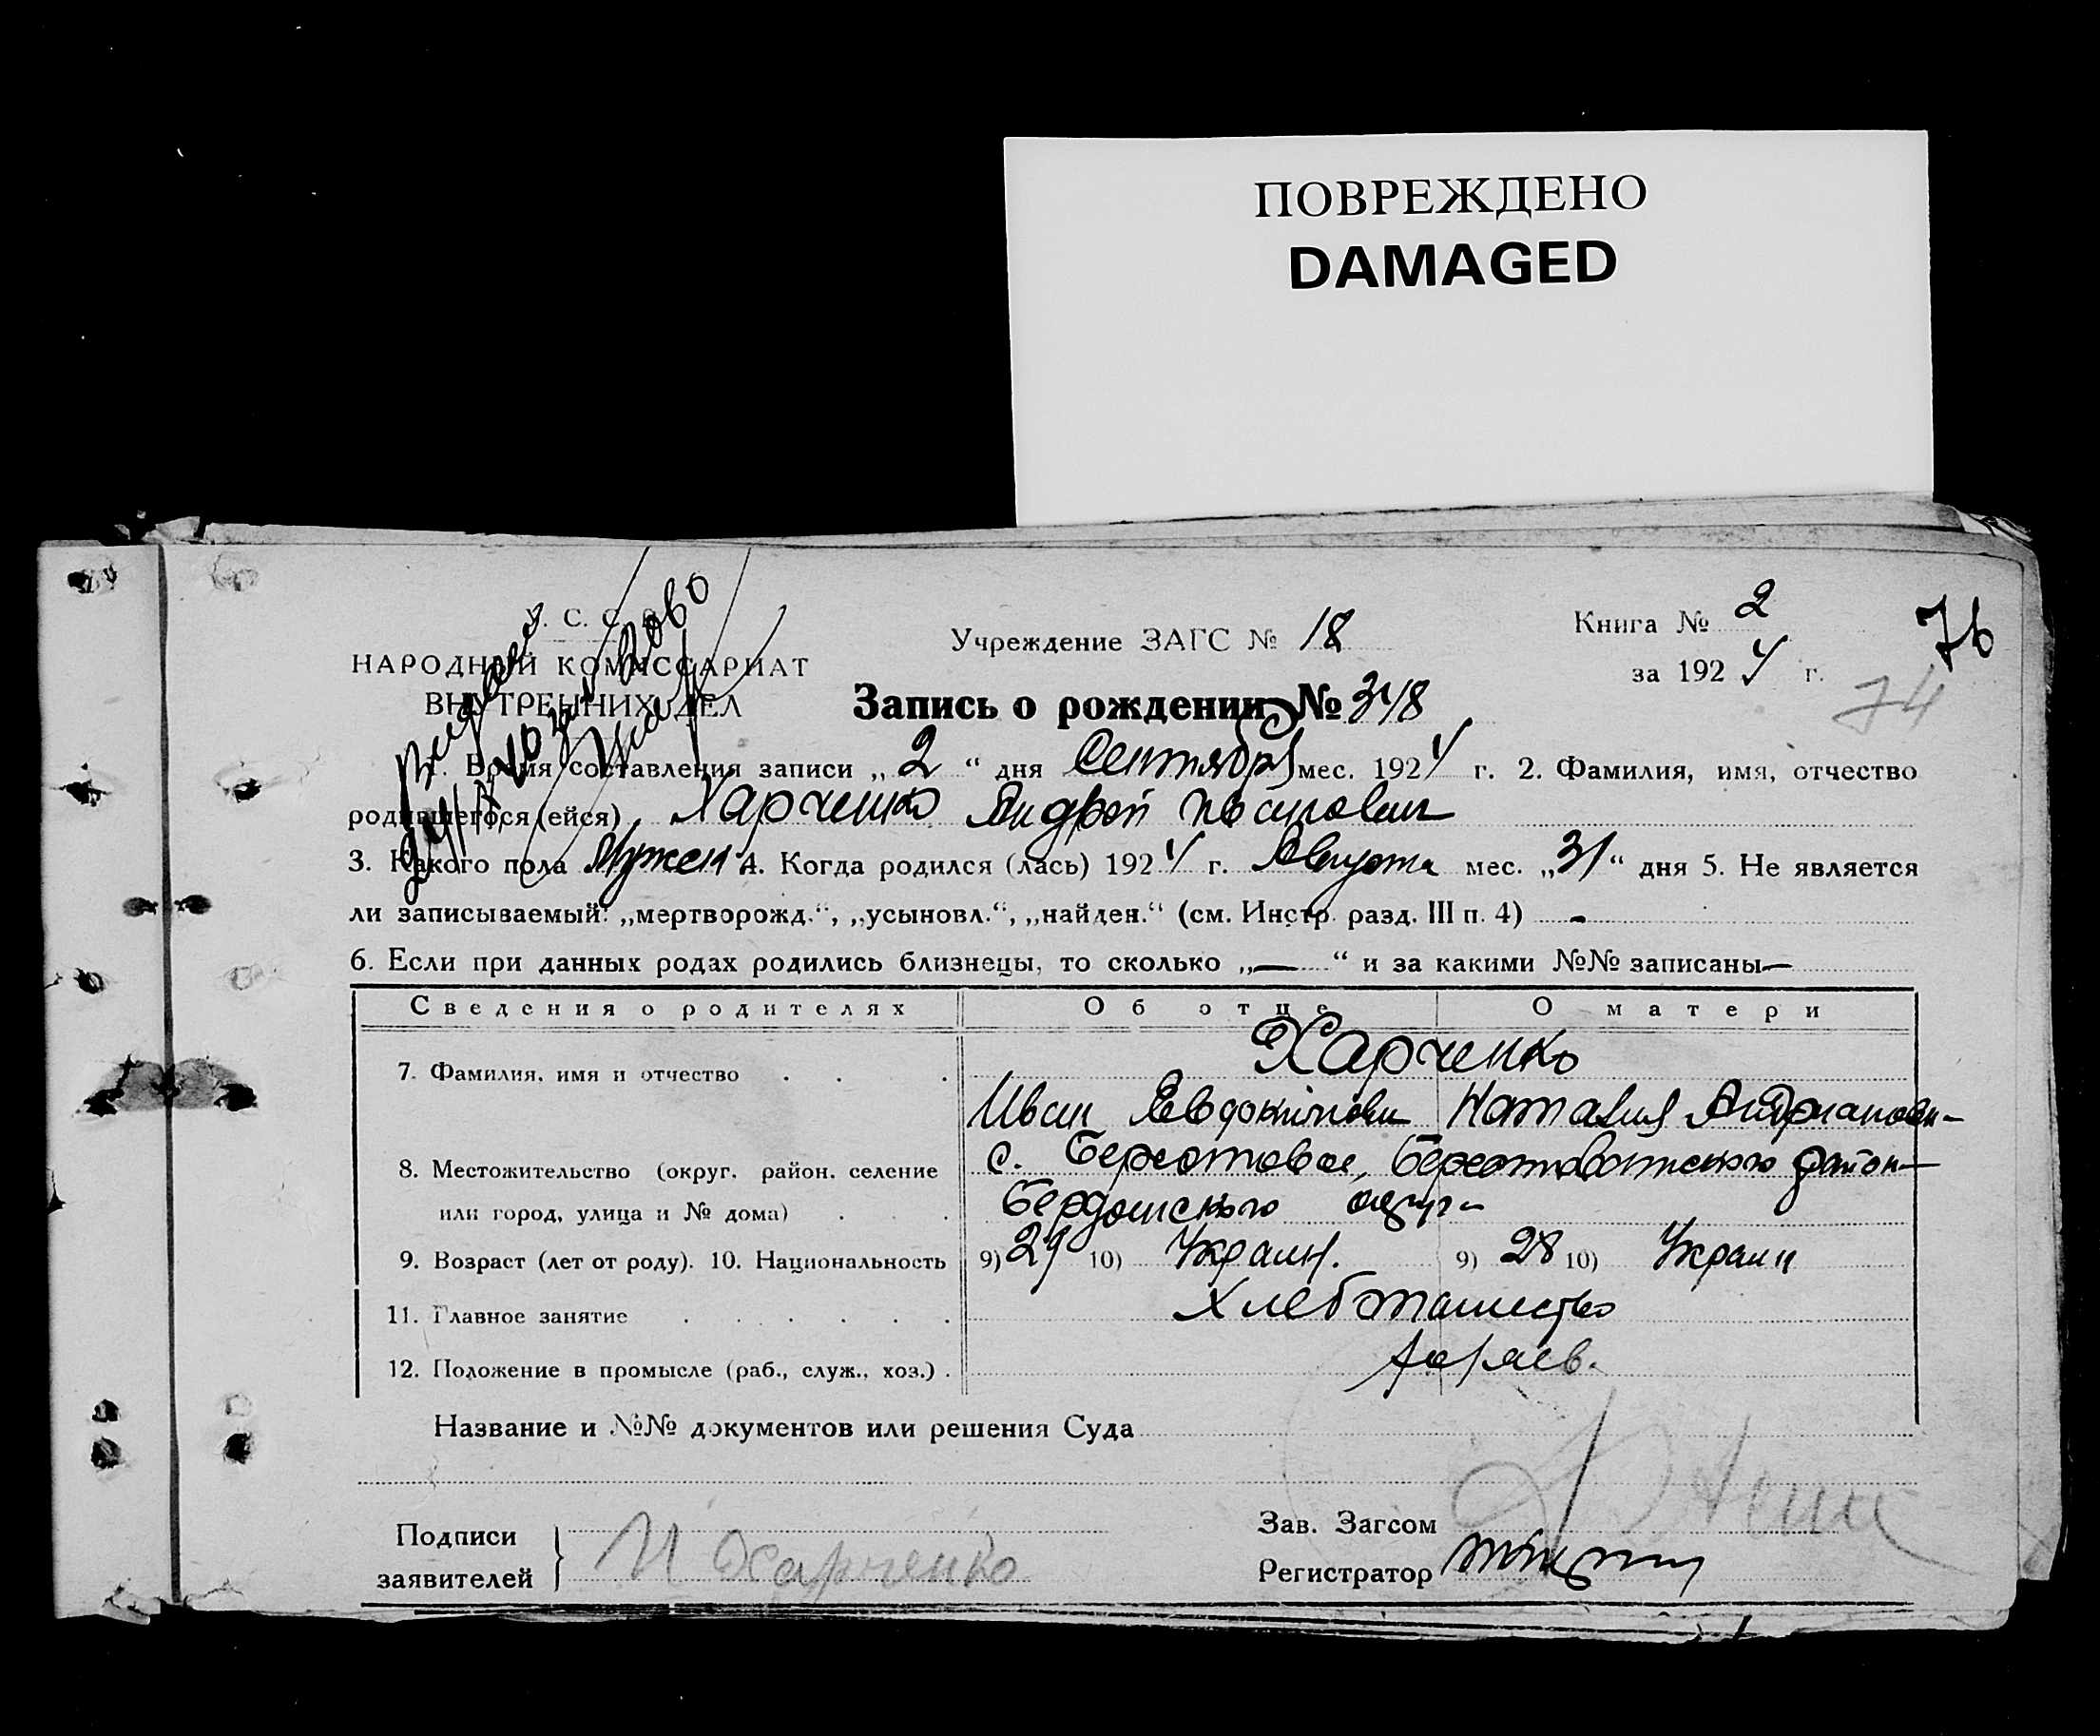 ПОВРЕЖДЕНО
DAMAGED
У. С. С. Р.
НАРОДНЫЙ КОМИССАРИАТ
ВНУТРЕННИХ ДЕЛ
Учреждение ЗАГС № 18
Книга № 2
за 1924 г.
76
74
Запись о рождении № 348
1. Время составления записи „2“ дня Сентября мес. 1924 г. 2. Фамилия, имя, отчество
родившегося (ейся) Харченко Андрей Иванович
3. Какого пола Мужск 4. Когда родился (лась) 1924 г. Августа мес. „31“ дня 5. Не является
ли записываемый: „мертворожд.“, „усыновл.“, „найден.“ (см. Инстр. разд. III п. 4) -
6. Если при данных родах родились близнецы, то сколько „—“ и за какими №№ записаны —
Сведения о родителях Об отце О матери
7. Фамилия, имя и отчество Харченко
Иван Евдокимови Наталия Андриановн-
8. Местожительство (округ, район, селение с. Берестовое, Берестовотского район-
или город, улица и № дома) Бердянского округ-
9. Возраст (лет от роду). 10. Национальность 9) 29 10) Украин. 9) 28 10) Украин
11. Главное занятие Хлебопашество
12. Положение в промысле (раб., служ., хоз.)
Название и №№ документов или решения Суда
Подписи
заявителей И Харченко
Зав. Загсом
Регистратор